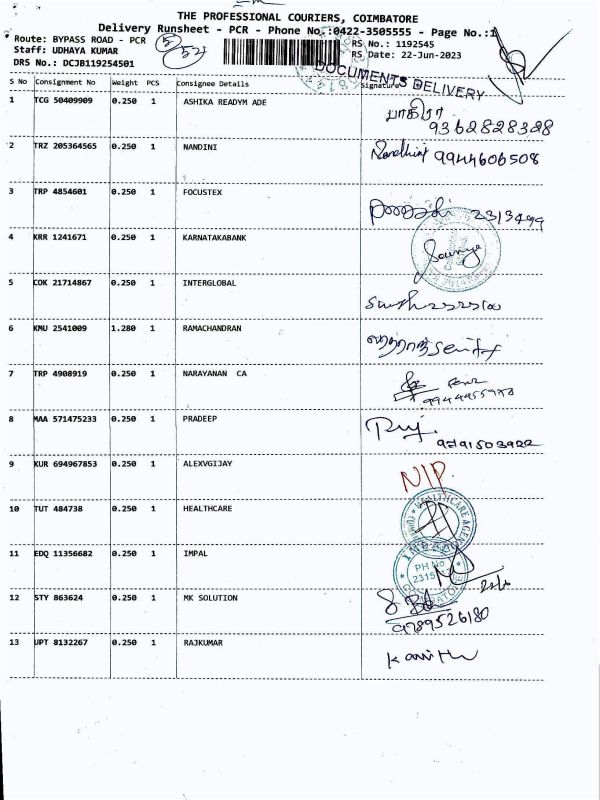 THE PROFESSIONAL COURIERS, COIMBATORE
Delivery Runsheet - PCR - Phone No.:0422-3505555 - Page No.:1
Route: BYPASS ROAD - PCR
RS No.: 1192545
Staff: UDHAYA KUMAR
RS Date: 22-Jun-2023
DRS No.: DCJB119254501
DOCUMENTS DELIVERY
S No Consignment No Weight PCS Consignee Details Signature
1 TCG 50409909 0.250 1 ASHIKA READYM ADE
9362828328
2 TRZ 205364565 0.250 1 NANDINI Nandhini 9944606508
3 TRP 4854601 0.250 1 FOCUSTEX 2313499
4 KRR 1241671 0.250 1 KARNATAKABANK Sowmya
5 COK 21714867 0.250 1 INTERGLOBAL
6 KMU 2541009 1.280 1 RAMACHANDRAN
7 TRP 4908919 0.250 1 NARAYANAN CA
8 MAA 571475233 0.250 1 PRADEEP
9791503922
9 KUR 694967853 0.250 1 ALEXVGIJAY NIP
10 TUT 484738 0.250 1 HEALTHCARE HEALTHCARE AGEN
11 EDQ 11356682 0.250 1 IMPAL
PH No
COIMBATORE
12 STY 863624 0.250 1 MK SOLUTION
9789526180
13 UPT 8132267 0.250 1 RAJKUMAR